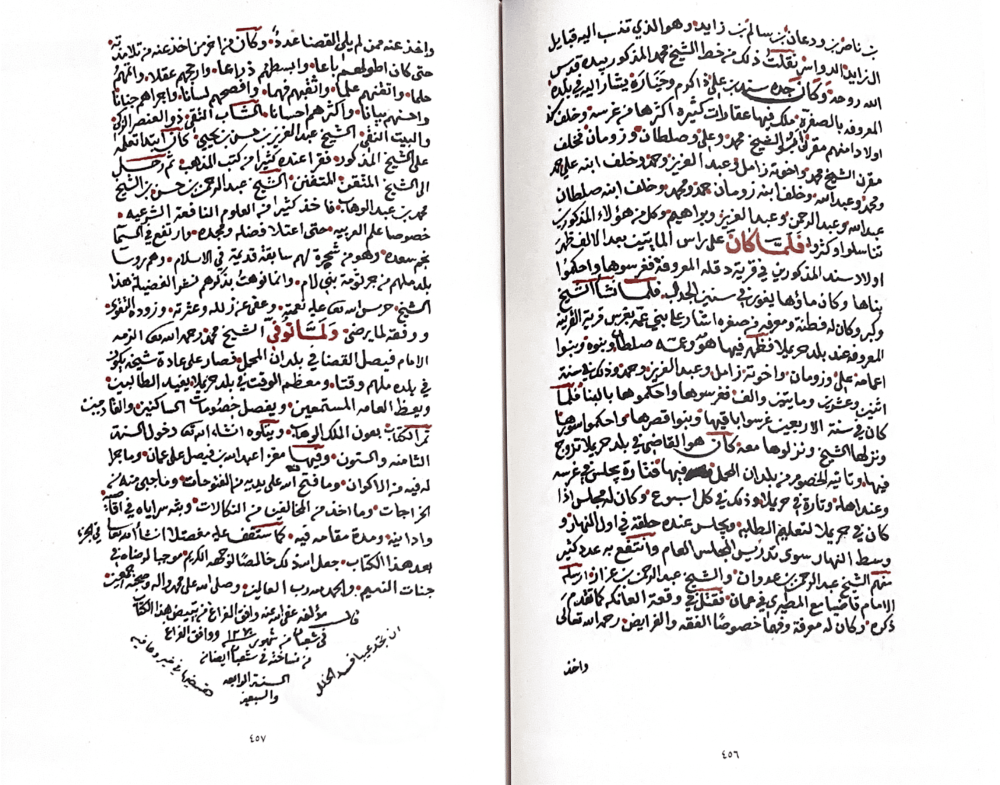 بن ناصر بن ودعان بن سالم بن زايد وهو الذي تنسب اليه قبايل
الزايد الدواسر نقلت ذلك من خط الشيخ محمد المذكور بيده قدس
الله روحه وكان جده سند بن علي ذا كرم وخيارة يشار اليه في بلده
المعروفه بالصفرة ملك فيها عقارات كثيره اكثرها من غرسه وخلف
اولادا منهم مقرن ابو الشيخ محمد وعلي وصلطان وزومان فخلف
مقرن الشيخ محمد واخوته زامل وعبد العزيز وحمد وخلف ابنه علي حمد
ومحمد وعبد الله وخلف ابنه زومان حمد ومحمد وخلف ابنه صلطان
عبد الله وعبد الرحمن وعبد العزيز وبراهيم وكل من هؤلاء المذكورين
تناسلوا وكثروا فلما كان على راس المايتين بعد الالف ظهر
اولاد سند المذكورين في قرية دقله المعروفة فغرسوها واحكموا
بناها وكان ماؤها يغور في سنين الجدب فلما نشأ الشيخ
وكبر وكان له فطنة ومعرفه في صغره اشار على بني عمه بغرس قرية القرينه
المعروفه عند بلد حريملا فظهر فيها هو وعمه صلطان وبنوه وبنوا
اعمامه علي وزومان واخوته زامل وعبد العزيز وحمد وذلك في سنة
اثنين وعشرين ومايتين والف فغرسوها واحكموها بالبنا فلما
كان في سنة الاربعين غرسوا باقيها وبنوا قصرها واحكموا سورها
ونزلها الشيخ ونزلوها معه كان هو القاضي في بلد حريملا تزوج
فيها وتاتيه الخصوم من بلدان المحمل فيها فتارة يجلس في غرسه
وعند اهله وتارة في حريملا وذلك في كل اسبوع وكان له مجلس اذا
كان في حريملا لتعليم الطلبه ويجلس عنده حلقه في اول النهار و
وسط النهار سوى تدريس المجلس العام وانتفع به عدد كثير
منهم الشيخ عبد الرحمن بن عدوان والشيخ عبد الرحمن بن عزاز ارسله
الامام قاضيا مع المطيري في عمان فقتل في وقعة العانكه كما تقدم
ذكره وكان له معرفة وفهما خصوصًا الفقه والفرايض رحمه الله تعالى
واخذ
٤٥٦
واخذ عنه ممن لم يلي القضا عدة وكان من اغر من اخذ عنه من تلامذته
حتى كان اطولهم باعا وابسطهم ذراعا وارجحهم عقلا واتمهم
حلما واتقنهم علما واثقبهم فهما وافصحهم لسانا واجراهم جنانا
واحسنهم بيانا واكثرهم احسانا الشاب التقي ذو العنصر الزكي
والبيت النقي الشيخ عبد العزيز بن حسن بن يحيى كان ابتدا تعلمه
على الشيخ المذكور فقرا عنده كثيرا من كتب المذهب ثم رحل
الى الشيخ المتقن المتفنن الشيخ عبد الرحمن بن حسن بن الشيخ
محمد بن عبد الوهاب فاخذ كثيرا من العلوم النافعة الشرعيه
خصوصا علم العربيه حتى اعتلا فضله ومجده وارتفع في السما
نجم سعده وهو من شجرة لهم سابقة قديمة في الاسلام وهم روسا
بلد ملهم من جرثومة بني لام وانما نوهت بذكرهم نشر الفضيلة هذا
الشيخ حرس الله تعالى عليه نعمته وعفى عن زلله وعثرته وزوده التقوى
ووفقه لما يرضى ولما توفي الشيخ محمد رحمه الله تعالى الزمه
الامام فيصل القضا في بلدان المحمل فصار على عادة شيخه يكون
في بلده ملهم وقتا ومعظم الوقت في بلد حريملا يفيد الطالبين
ويعظ العامه المستمعين ويفصل خصومات الساكنين والقادمين
تم الكتاب بعون الملك الوهاب ويتلوه انشاء الله تعالى دخول السنة
الثامنه والستون وفيها مغزا عبد الله بن فيصل على عمان وما جرا
له فيه من الاكوان وما فتح الله على يديه من الفتوحات وما جبي منه من
الخراجات وما اخذ من المخالفين من النكالات وبثه سراياه في اقاصيه
وادانيه ومدة مقامه فيه كما ستقف عليه مفصلا انشا الله تعالى في الجزء
بعد هذا الكتاب جعل الله ذلك خالصًا لوجهه الكريم موجبا لرضاه في
جنات النعيم والحمد لله رب العالمين وصلى الله على محمد واله وصحبه اجمعين
قال مؤلفه عفى الله عنه وافق الفراغ من تبييض هذا الكتاب
في شعبان من شهور ١٢٧٠ ووافق الفراغ
من نساخته في شعبان ايضا من
السنة الرابعه
والسبعين
ان تجد عيبا فسد الخللا
٤٥٧